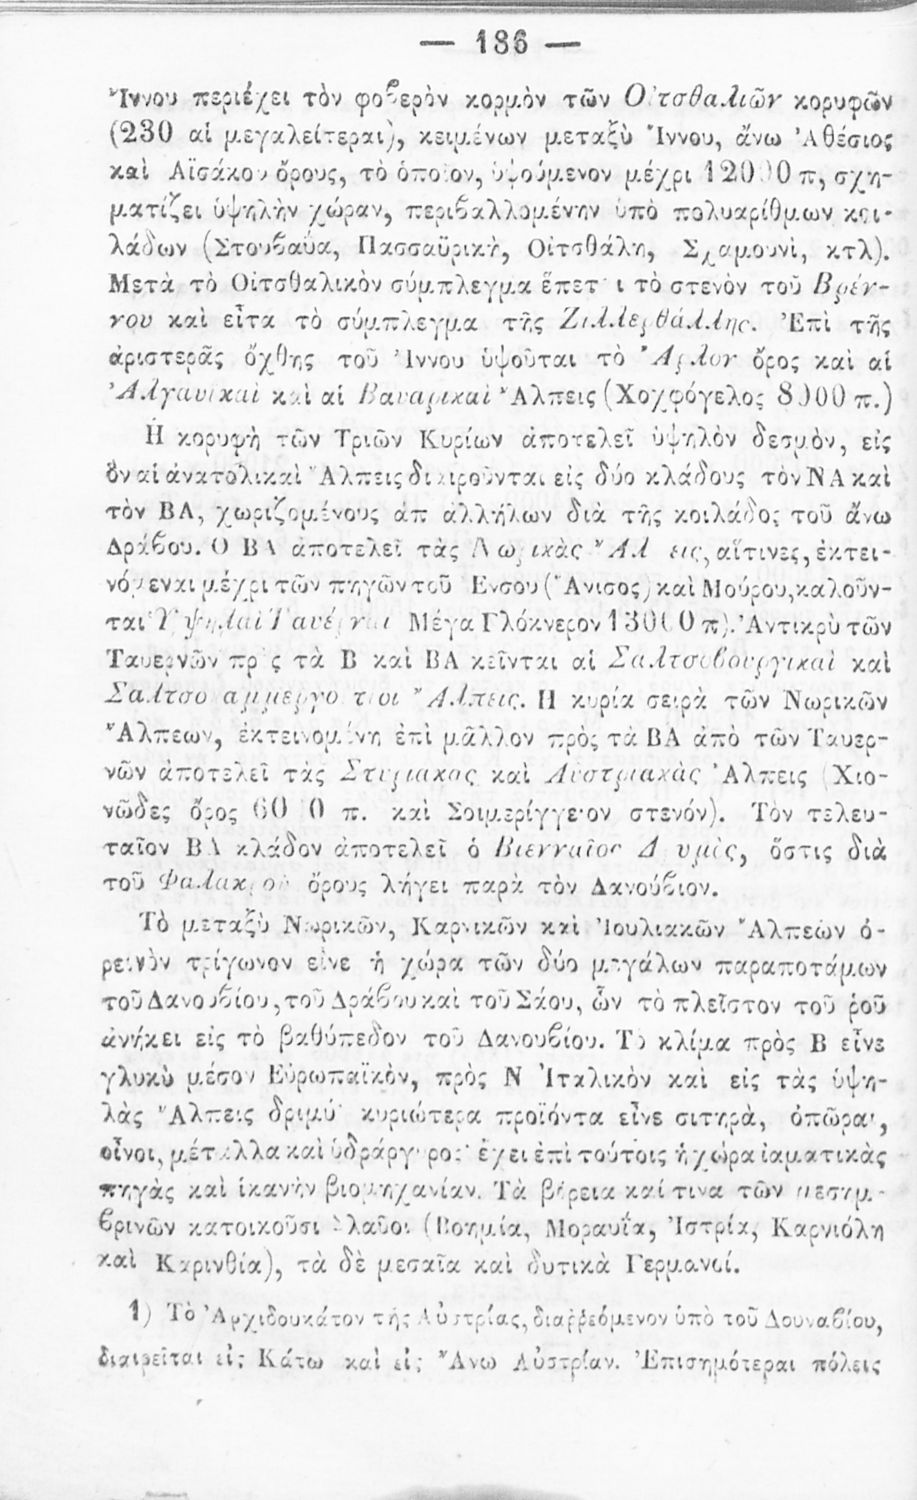 — 186 —
Ἴννου περιέχει τὸν φοβερὸν κορμὸν τῶν Οἰτσθαλιῶν κορυφῶν
(230 αἱ μεγαλείτεραι), κειμένων μεταξὺ Ἴννου, ἄνω Ἀθέσιος
καὶ Αἰσάκου ὄρους, τὸ ὁποῖον, ὑψούμενον μέχρι 12000 π, σχη-
ματίζει ὑψηλὴν χώραν, περιβαλλομένην ὑπὸ πολυαρίθμων κοι-
λάδων (Στουβαῦα, Πασσαϋρικὴ, Οἰτσθάλη, Σχαμουνὶ, κτλ).
Μετὰ τὸ Οἰτσθαλικὸν σύμπλεγμα ἕπεται τὸ στενὸν τοῦ Βρέν-
νου καὶ εἶτα τὸ σύμπλεγμα τῆς Ζιλλερθάλλης. Ἐπὶ τῆς
ἀριστερᾶς ὄχθης τοῦ Ἴννου ὑψοῦται τὸ Ἄρλον ὄρος καὶ αἱ
Ἀλγαυϊκαὶ καὶ αἱ Βαυαρικαὶ Ἄλπεις (Χοχφόγελος 8000 π.)
Ἡ κορυφὴ τῶν Τριῶν Κυρίων ἀποτελεῖ ὑψηλὸν δεσμὸν, εἰς
ὃν αἱ ἀνατολικαὶ Ἄλπεις διαιροῦνται εἰς δύο κλάδους τὸν ΝΑ καὶ
τὸν ΒΑ, χωριζομένους ἀπ ἀλλήλων διὰ τῆς κοιλάδος τοῦ ἄνω
Δράβου. Ὁ ΒΑ ἀποτελεῖ τὰς Νωρικὰς Ἄλπεις, αἵτινες, ἐκτει-
νόμεναι μέχρι τῶν πηγῶν τοῦ Ἔνσου (Ἄνισος) καὶ Μούρου, καλοῦν-
ται Ὑψηλαὶ Ταυέρναι Μέγα Γλόκνερον 13000 π). Ἀντικρὺ τῶν
Ταυερνῶν πρὸς τὰ Β καὶ ΒΑ κεῖνται αἱ Σαλτσοβουργικαὶ καὶ
Σαλτσοκαμμεργούτιοι Ἄλπεις. Ἡ κυρία σειρὰ τῶν Νωρικῶν
Ἄλπεων, ἐκτεινομένη ἐπὶ μᾶλλον πρὸς τὰ ΒΑ ἀπὸ τῶν Ταυερ-
νῶν ἀποτελεῖ τὰς Στυριακὰς καὶ Αὐστριακὰς Ἄλπεις (Χιο-
νῶδες ὄρος 6000 π. καὶ Σοιμερίγγειον στενόν). Τὸν τελευ-
ταῖον ΒΑ κλάδον ἀποτελεῖ ὁ Βιενναῖος Δρυμὸς, ὅστις διὰ
τοῦ Φαλακροῦ ὄρους λήγει παρὰ τὸν Δανούβιον.
Τὸ μεταξὺ Νωρικῶν, Καρνικῶν καὶ Ἰουλιακῶν Ἄλπεων ὀ-
ρεινὸν τρίγωνον εἶνε ἡ χώρα τῶν δύο μεγάλων παραποτάμων
τοῦ Δανουβίου, τοῦ Δράβου καὶ τοῦ Σάου, ὧν τὸ πλεῖστον τοῦ ῥοῦ
ἀνήκει εἰς τὸ βαθύπεδον τοῦ Δανουβίου. Τὸ κλίμα πρὸς Β εἶνε
γλυκὺ μέσον Εὐρωπαϊκὸν, πρὸς Ν Ἰταλικὸν καὶ εἰς τὰς ὑψη-
λὰς Ἄλπεις δριμύ· κυριώτερα προϊόντα εἶνε σιτηρὰ, ὀπῶραι,
οἶνοι, μέταλλα καὶ ὑδράργυρος· ἔχει ἐπὶ τούτοις ἡ χώρα ἰαματικὰς
πηγὰς καὶ ἱκανὴν βιομηχανίαν. Τὰ βόρεια καί τινα τῶν μεσημ-
βρινῶν κατοικοῦσι Σλαῦοι (Βοημία, Μοραυΐα, Ἰστρία, Καρνιόλη
καὶ Καρινθία), τὰ δὲ μεσαῖα καὶ δυτικὰ Γερμανοί.
1) Τὸ Ἀρχιδουκάτον τῆς Αὐστρίας, διαῤῥεόμενον ὑπὸ τοῦ Δουναβίου,
διαιρεῖται εἰς Κάτω καὶ εἰς Ἄνω Αὐστρίαν. Ἐπισημότεραι πόλεις